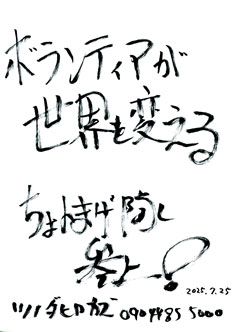 ボランティアが
世界を変える
ちょんまげ隊
参上!
2025.7.25
ツノダヒロカズ 0904485 5000